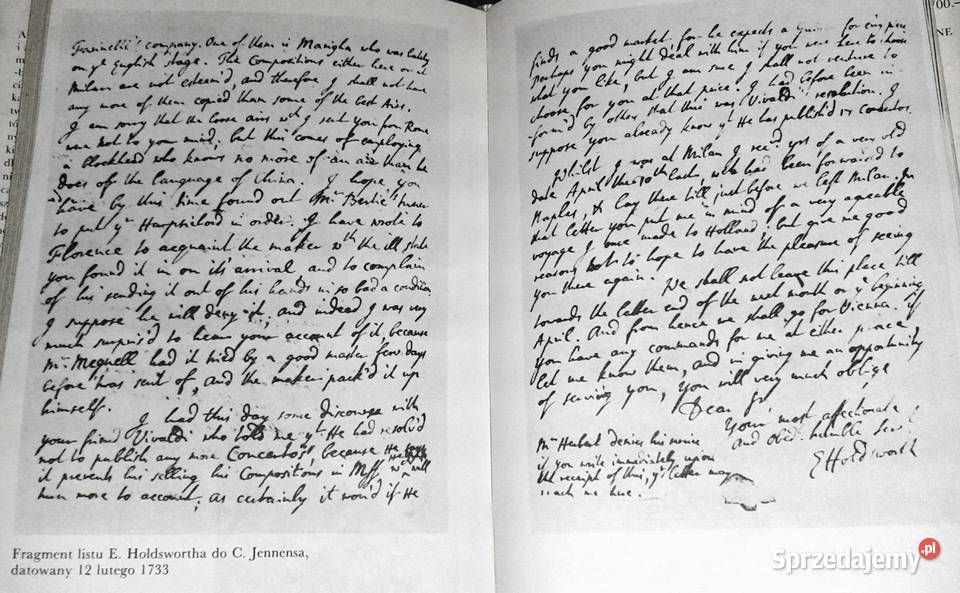 Farinelli's company. One of them is Mareglia who was lately
on ye English stage. The Compositions either here or at
Milan are not esteem'd, and therefore I shall not have
any more of them copied than some of the best Airs.
I am sorry that the loose airs wch I sent you from Rome
were not to your mind; but this comes of employing
a Blockhead who knows no more of an air than he
does of the language of China. I hope you
have by this time found out Mr Bertie's
to put yr Harpsichord in order. I have wrote to
Florence to acquaint the maker wth the ill state
you found it in on its arrival, and to complain
of his sending it out of his hands in so bad a condition
I suppose he will deny it. and indeed I was very
much surpris'd to hear your account of it, because
Mr Megnell had it tried by a good master few days
before 'twas sent of, and the maker pack'd it up
himself.
I had this day some discourse with
your friend Vivaldi who told me yt He had resolv'd
not to publish any more Concertos, because He says
it prevents his selling his Compositions in MSS wch He will
turn more to account; as certainly it wou'd if He
finds a good market for he expects a Guinea for ev'ry piece
Perhaps you might deal with him if you were here to choose
what you like, but I am sure I shall not venture to
choose for you at that price. I had before been in
-form'd by others that this was Vivaldi's resolution. I
suppose you already know yt He has publish'd 17 concertos.
Whilst I was at Milan I rec'd yrs of a very old
date April the 10th last, wch had been forwarded to
Naples, & lay there till just before we left Milan. In
that letter you put me in mind of a very agreable
voyage I once made to Holland. but give me good
reason not to hope to have the pleasure of seeing
you there again. We shall not leave this place till
towards the latter end of the next month or ye beginning
April. And from hence we shall go for Vienna. if
you have any commands for me at either place,
let me know them, and in giving me an opportunity
of serving you, You will very much oblige
Dear Sr
Your most affectionate
and obed. humble Servt
EHoldsworth
Mr Herbert desires his service
if you write immediately upon
the receipt of this, yr letter may
reach me here.
Fragment listu E. Holdswortha do C. Jennensa,
datowany 12 lutego 1733
700.—
NE
Sprzedajemy.pl